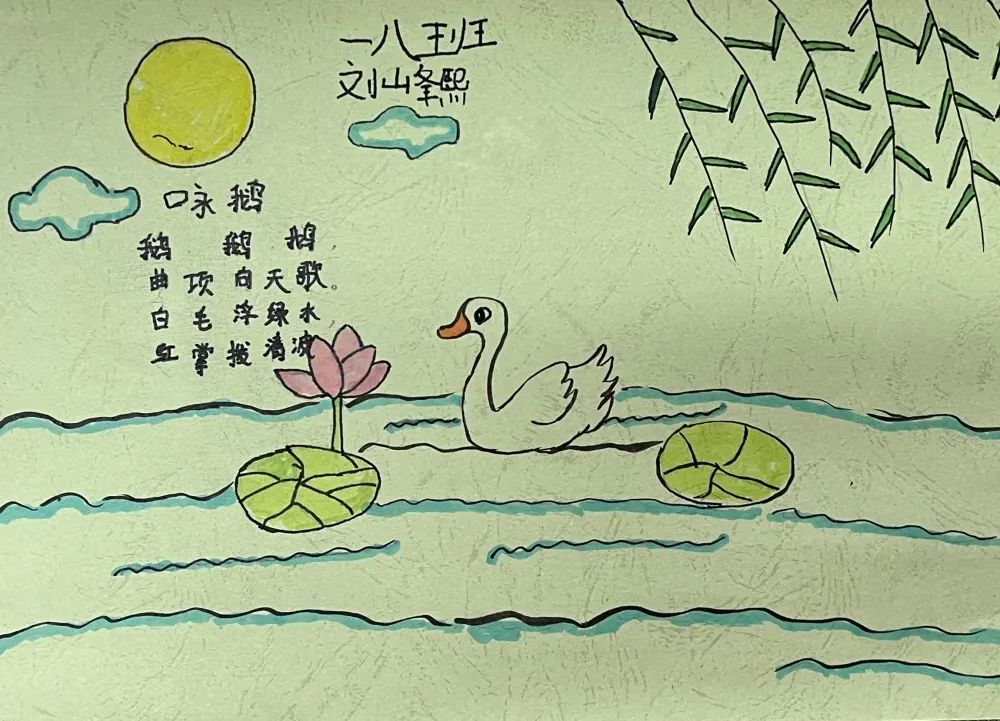 一八班
刘峰熙
咏鹅
鹅 鹅 鹅
曲项向天歌。
白毛浮绿水
红掌拨清波